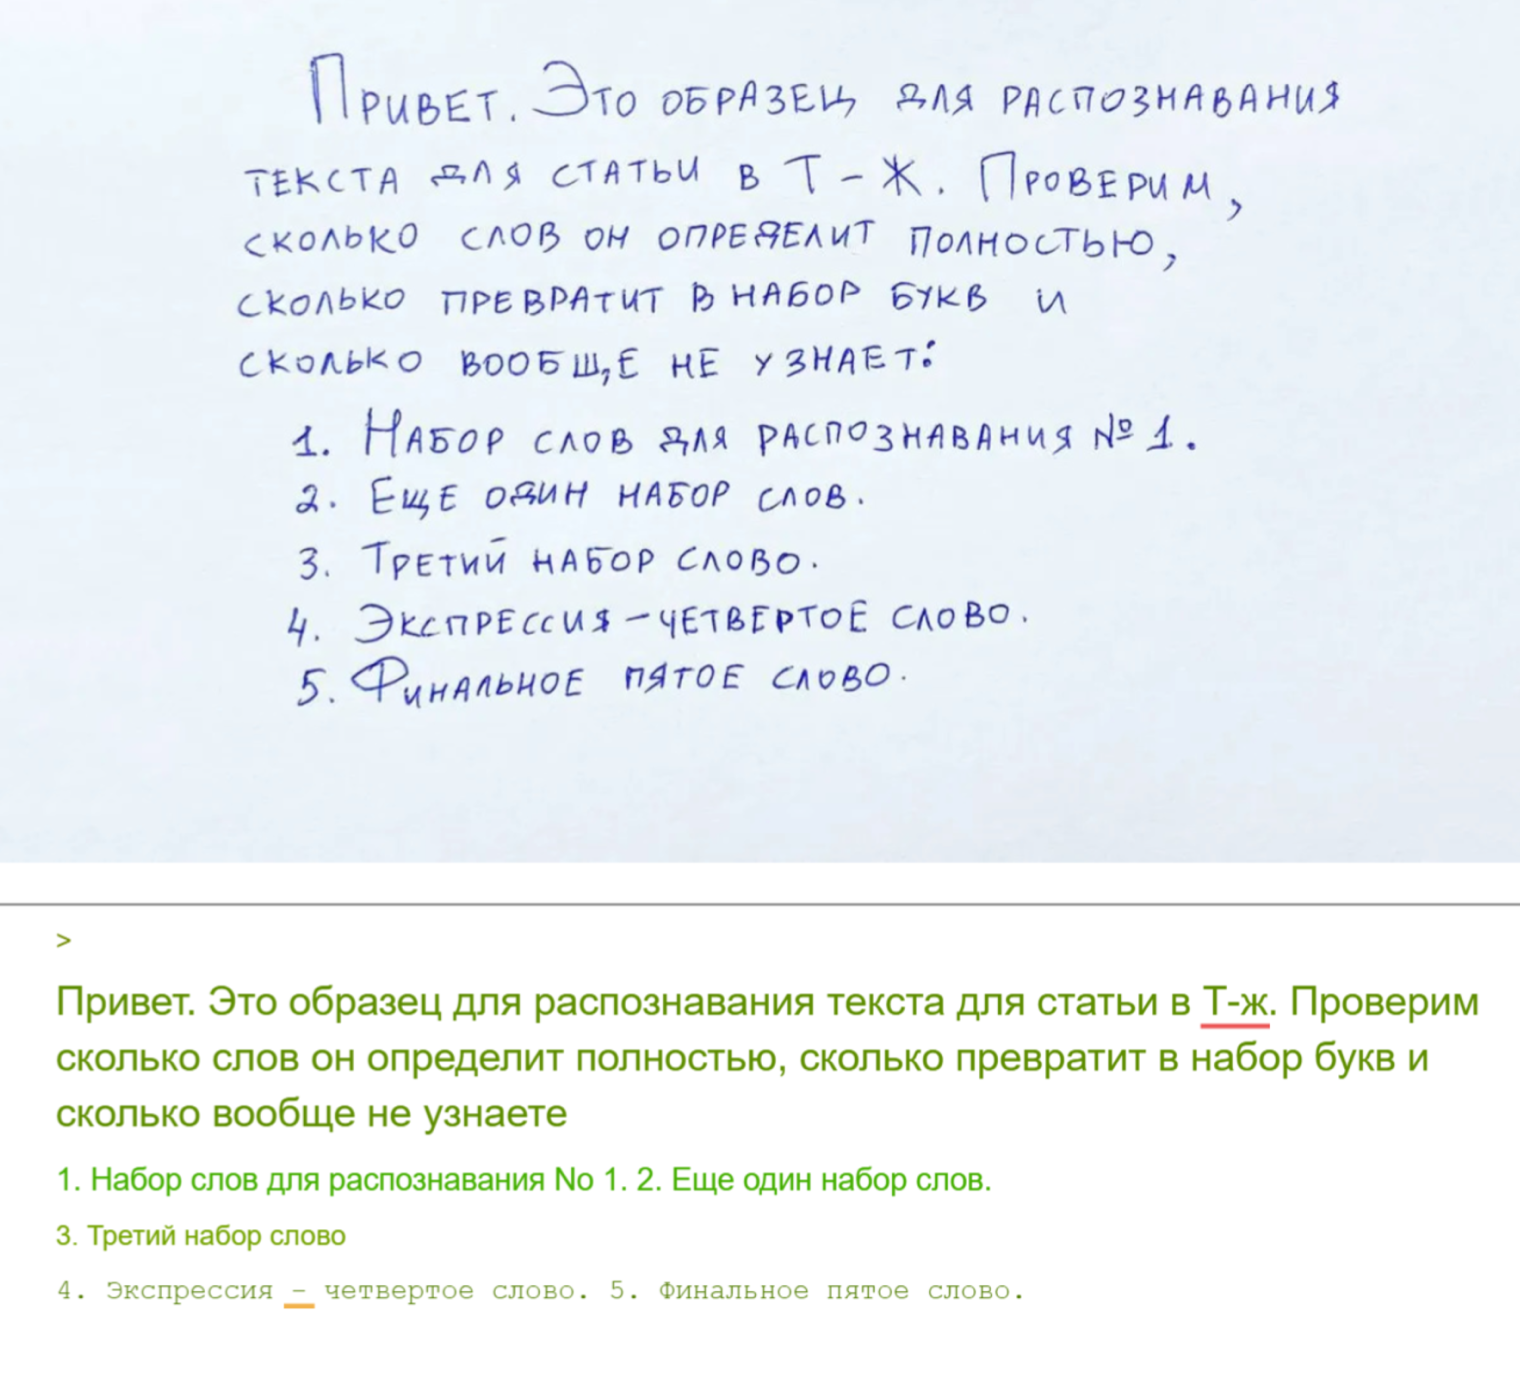 Привет. Это образец для распознавания
текста для статьи в Т-Ж. Проверим,
сколько слов он определит полностью,
сколько превратит в набор букв и
сколько вообще не узнает:
1. Набор слов для распознавания №1.
2. Еще один набор слов.
3. Третий набор слово.
4. Экспрессия-четвертое слово.
5. Финальное пятое слово.
>
Привет. Это образец для распознавания текста для статьи в Т-ж. Проверим
сколько слов он определит полностью, сколько превратит в набор букв и
сколько вообще не узнаете
1. Набор слов для распознавания No 1. 2. Еще один набор слов.
3. Третий набор слово
4. Экспрессия – четвертое слово. 5. Финальное пятое слово.